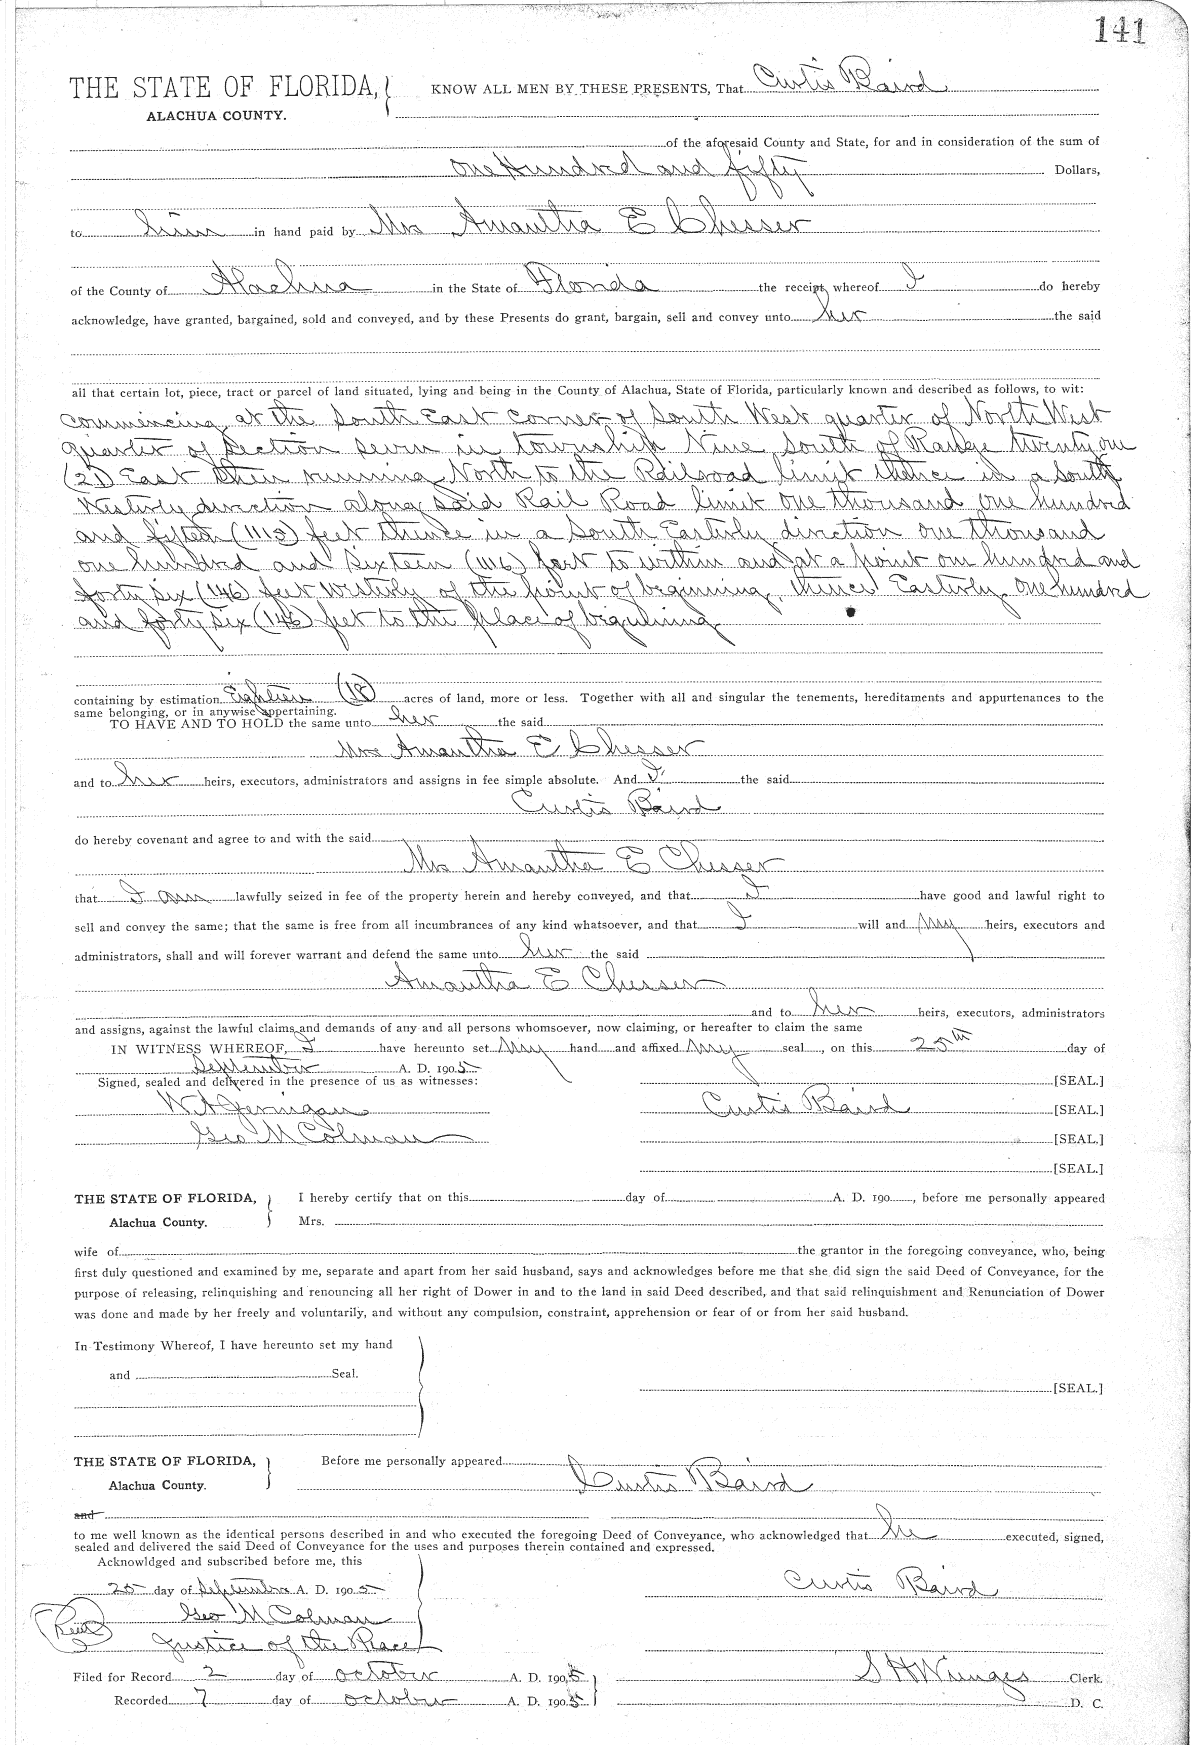 141
THE STATE OF FLORIDA, KNOW ALL MEN BY THESE PRESENTS, That Curtis Baird
ALACHUA COUNTY.
of the aforesaid County and State, for and in consideration of the sum of
one Hundred and fifty Dollars,
to him in hand paid by Mrs Amantha E Chesser
of the County of Alachua in the State of Florida the receipt whereof I do hereby
acknowledge, have granted, bargained, sold and conveyed, and by these Presents do grant, bargain, sell and convey unto her the said
all that certain lot, piece, tract or parcel of land situated, lying and being in the County of Alachua, State of Florida, particularly known and described as follows, to wit:
commencing at the South East corner of South West quarter of North West
quarter of Section seven in township Nine South of Range twenty one
(21) East then running North to the Railroad limit thence in a South
Westerly direction along said Rail Road limit one thousand one hundred
and fifteen (1115) feet thence in a South Easterly direction one thousand
one hundred and Sixteen (1116) feet to within and at a point one hundred and
forty six (146) feet Westerly of the point of beginning, thence Easterly one hundred
and forty six (146) feet to the place of beginning
containing by estimation Eighteen (18) acres of land, more or less. Together with all and singular the tenements, hereditaments and appurtenances to the
same belonging, or in anywise appertaining.
TO HAVE AND TO HOLD the same unto her the said
Mrs Amantha E Chesser
and to her heirs, executors, administrators and assigns in fee simple absolute. And I the said
Curtis Baird
do hereby covenant and agree to and with the said
Mrs Amantha E Chesser
that I am lawfully seized in fee of the property herein and hereby conveyed, and that I have good and lawful right to
sell and convey the same; that the same is free from all incumbrances of any kind whatsoever, and that I will and my heirs, executors and
administrators, shall and will forever warrant and defend the same unto her the said
Amantha E Chesser
and to her heirs, executors, administrators
and assigns, against the lawful claims and demands of any and all persons whomsoever, now claiming, or hereafter to claim the same
IN WITNESS WHEREOF, I have hereunto set my hand and affixed my seal, on this 25th day of
September A. D. 1905
Signed, sealed and delivered in the presence of us as witnesses: [SEAL.]
W A Jernigan Curtis Baird [SEAL.]
Geo M Colman [SEAL.]
[SEAL.]
THE STATE OF FLORIDA, I hereby certify that on this day of A. D. 190 , before me personally appeared
Alachua County. Mrs.
wife of the grantor in the foregoing conveyance, who, being
first duly questioned and examined by me, separate and apart from her said husband, says and acknowledges before me that she did sign the said Deed of Conveyance, for the
purpose of releasing, relinquishing and renouncing all her right of Dower in and to the land in said Deed described, and that said relinquishment and Renunciation of Dower
was done and made by her freely and voluntarily, and without any compulsion, constraint, apprehension or fear of or from her said husband.
In Testimony Whereof, I have hereunto set my hand
and Seal.
[SEAL.]
THE STATE OF FLORIDA, Before me personally appeared
Alachua County. Curtis Baird
and
to me well known as the identical persons described in and who executed the foregoing Deed of Conveyance, who acknowledged that he executed, signed,
sealed and delivered the said Deed of Conveyance for the uses and purposes therein contained and expressed.
Acknowldged and subscribed before me, this
25 day of September A. D. 1905 Curtis Baird
Geo M Colman
Seal Justice of the Peace
Filed for Record 2 day of October A. D. 1905 S H Wienges Clerk.
Recorded 7 day of October A. D. 1905 D. C.